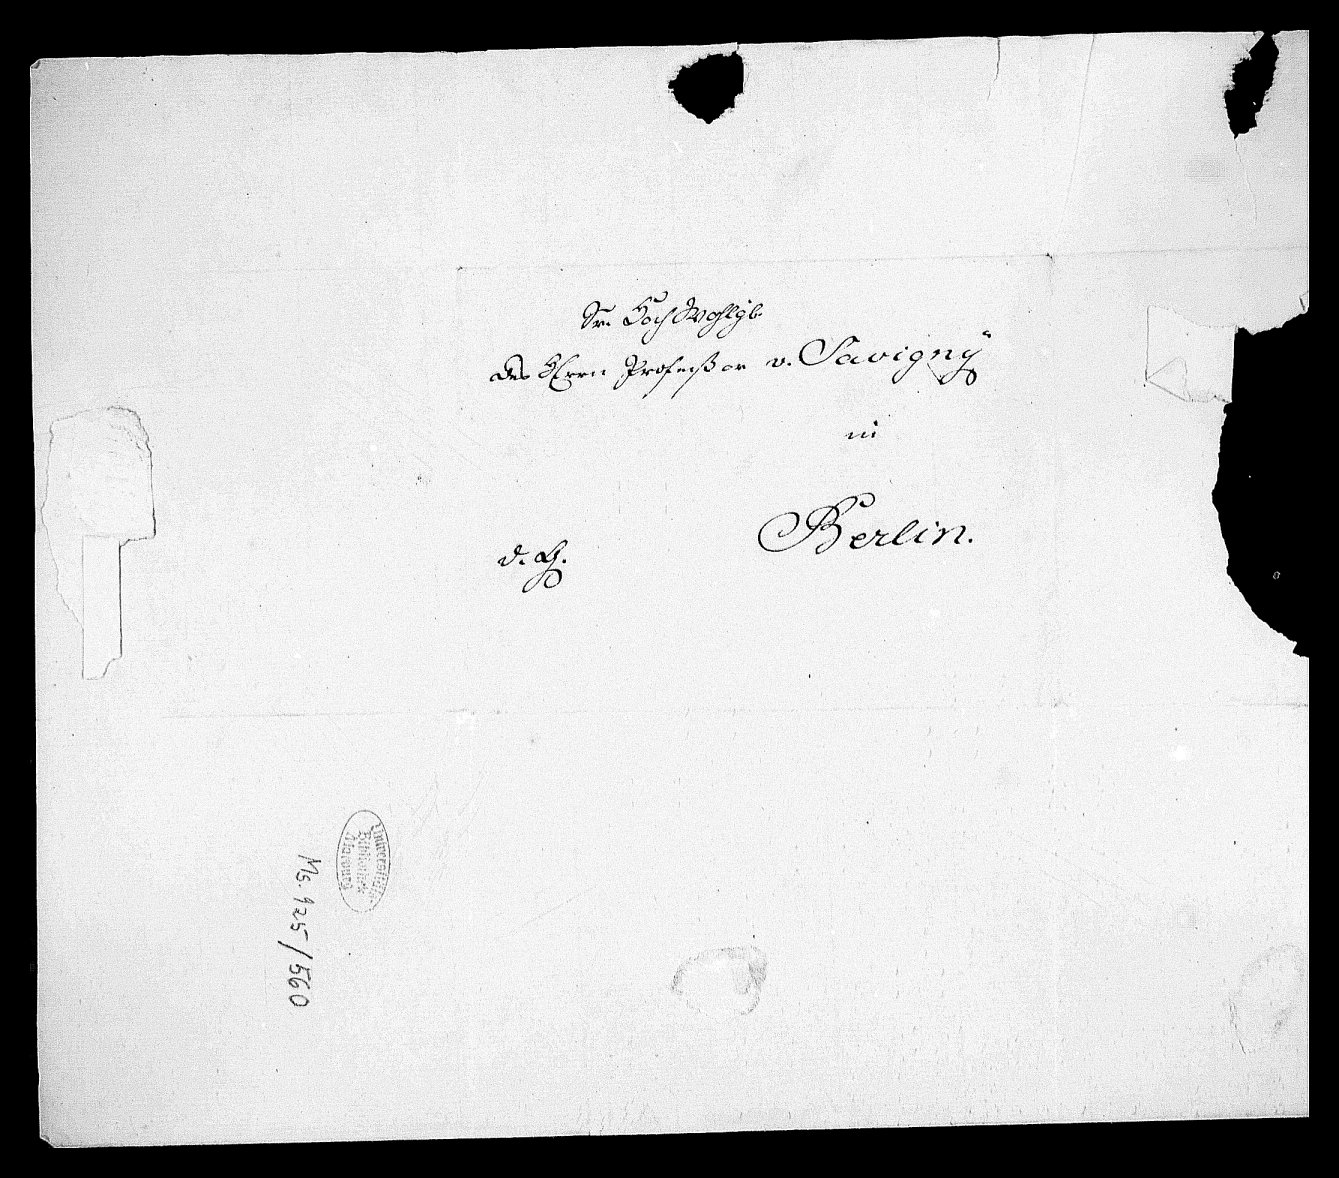 Sr. Hoch Wohlgb.
des Herrn Professor v. Savigny
in
Berlin.
d. G.
Universitäts-
Bibliothek
Marburg
Ms. 925/560